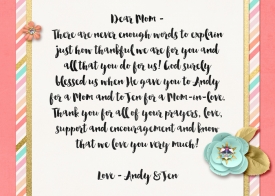 Dear Mom -
There are never enough words to explain
just how thankful we are for you and
all that you do for us! God surely
blessed us when He gave you to Andy
for a Mom and to Jen for a Mom-in-love.
Thank you for all of your prayers, love,
support and encouragement and know
that we love you very much!
Love - Andy & Jen